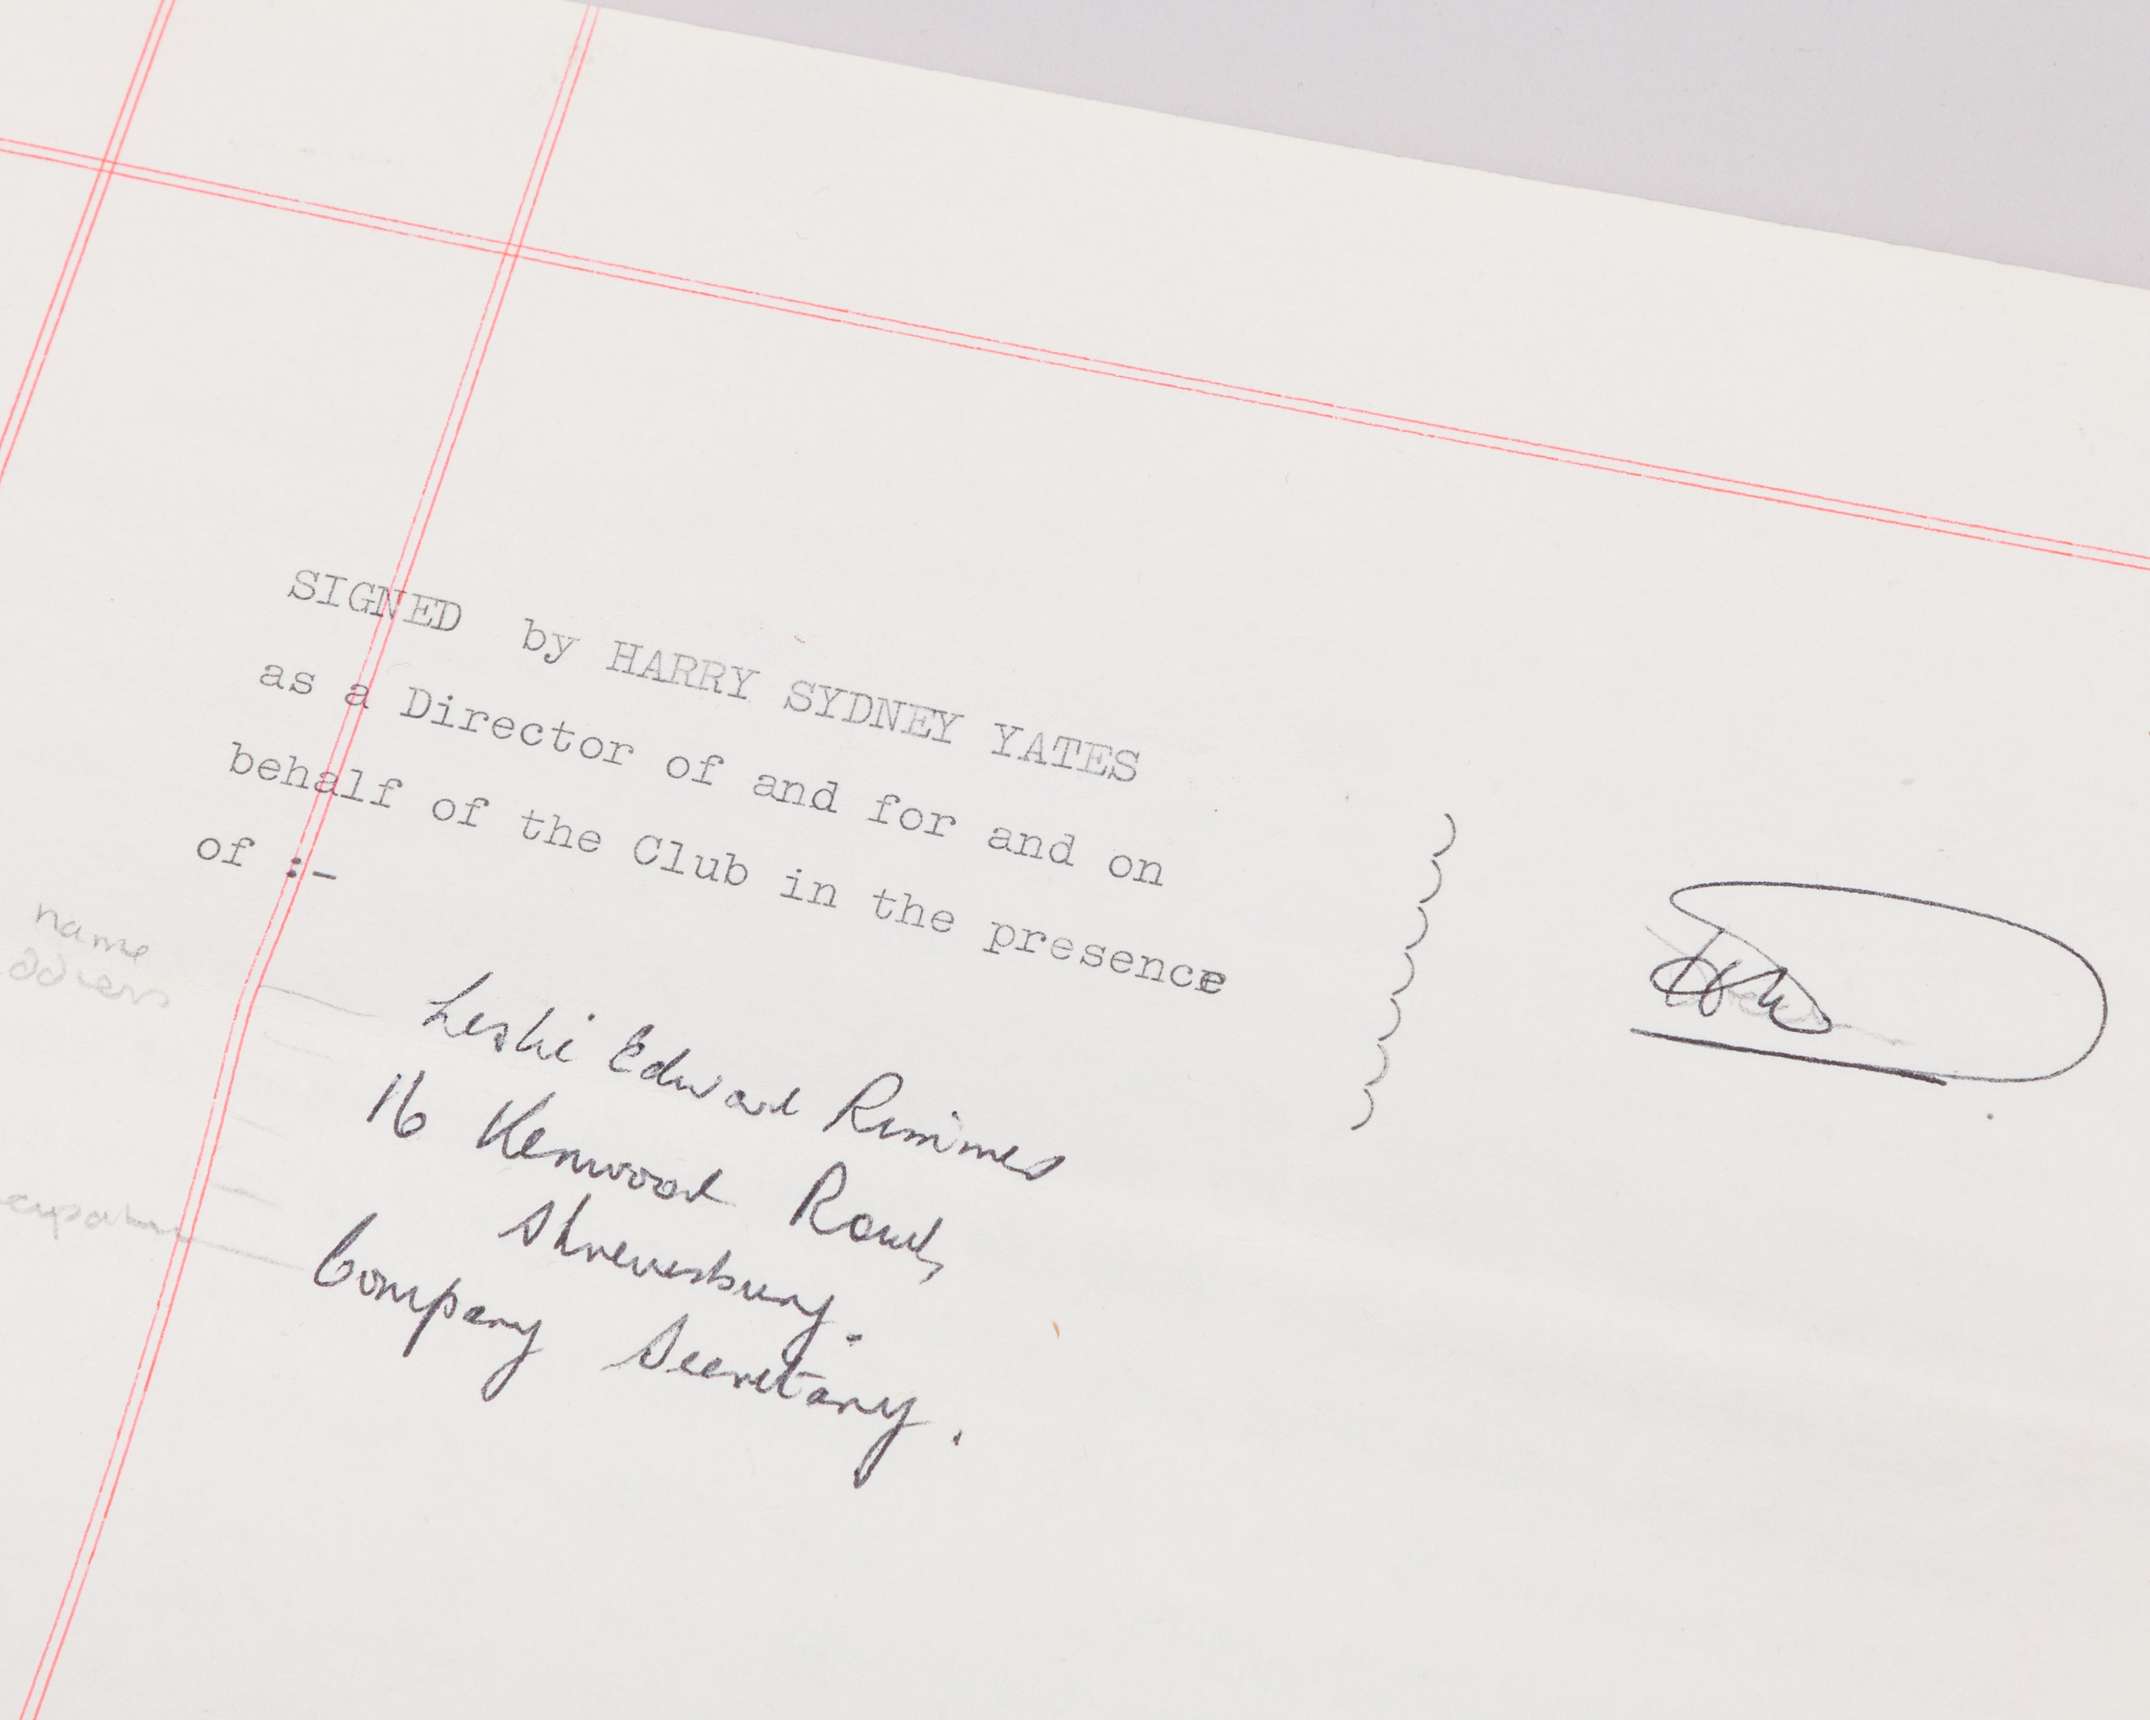 SIGNED by HARRY SYDNEY YATES
as a Director of and for and on
behalf of the Club in the presence
of :-
name
address
Leslie Edward Rimmer
16 Kenwood Road,
Shrewsbury.
Company Secretary.